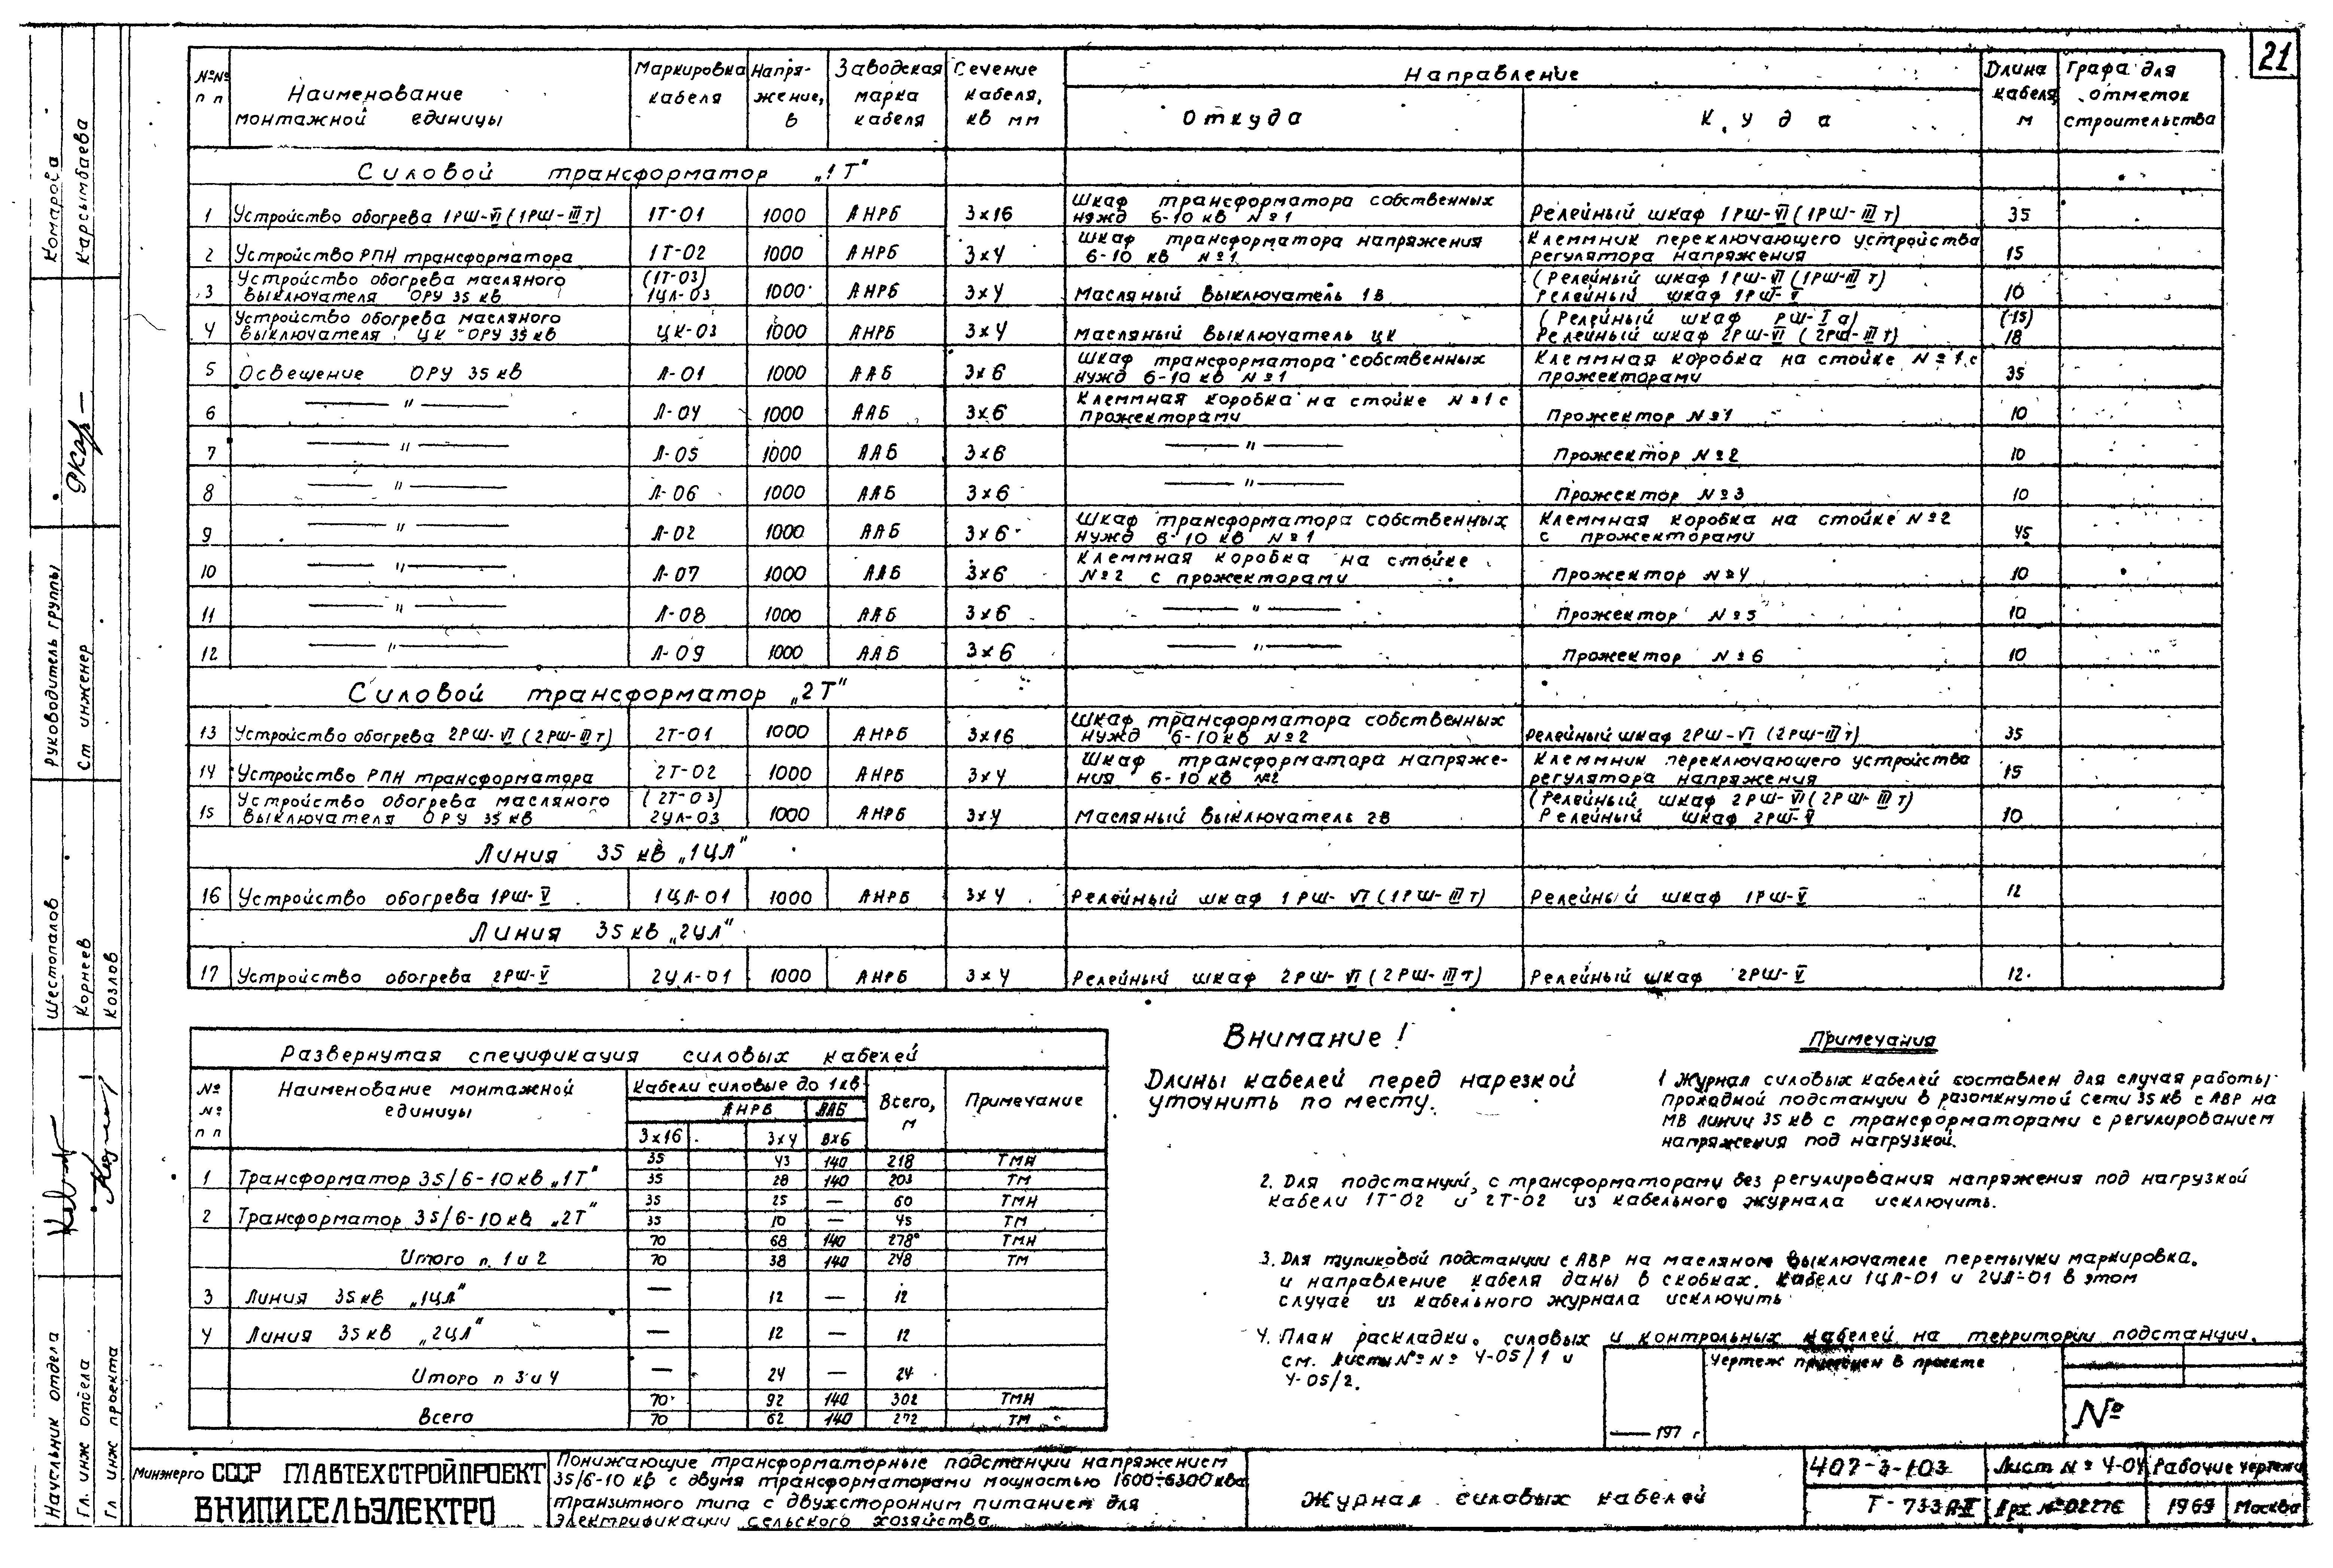 21
№№ п п | Наименование монтажной единицы | Маркировка кабеля | Напряжение, в | Заводская марка кабеля | Сечение кабеля, кв мм | Направление | Длина кабеля м | Графа для отметок строительства
Откуда | Куда
Силовой трансформатор „1Т"
1 | Устройство обогрева 1РШ-VI (1РШ-III т) | 1Т-01 | 1000 | АНРБ | 3×16 | Шкаф трансформатора собственных нужд 6-10 кв №1 | Релейный шкаф 1РШ-VI (1РШ-III т) | 35
2 | Устройство РПН трансформатора | 1Т-02 | 1000 | АНРБ | 3×4 | Шкаф трансформатора напряжения 6-10 кв №1 | Клеммник переключающего устройства регулятора напряжения | 15
3 | Устройство обогрева масляного выключателя ОРУ 35 кв | (1Т-03) 1ЦЛ-03 | 1000 | АНРБ | 3×4 | Масляный выключатель 1В | (Релейный шкаф 1РШ-VI (1РШ-III т) Релейный шкаф 1РШ-V | 10
4 | Устройство обогрева масляного выключателя ЦК ОРУ 35 кв | ЦК-03 | 1000 | АНРБ | 3×4 | Масляный выключатель ЦК | (Релейный шкаф РШ-I а) Релейный шкаф 2РШ-VI (2РШ-III т) | (15) 18
5 | Освещение ОРУ 35 кв | Л-01 | 1000 | ААБ | 3×6 | Шкаф трансформатора собственных нужд 6-10 кв №1 | Клеммная коробка на стойке №1 с прожекторами | 35
6 | — " — | Л-04 | 1000 | ААБ | 3×6 | Клеммная коробка на стойке №1 с прожекторами | Прожектор №1 | 10
7 | — " — | Л-05 | 1000 | ААБ | 3×6 | — " — | Прожектор №2 | 10
8 | — " — | Л-06 | 1000 | ААБ | 3×6 | — " — | Прожектор №3 | 10
9 | — " — | Л-02 | 1000 | ААБ | 3×6 | Шкаф трансформатора собственных нужд 6-10 кв №1 | Клеммная коробка на стойке №2 с прожекторами | 45
10 | — " — | Л-07 | 1000 | ААБ | 3×6 | Клеммная коробка на стойке №2 с прожекторами | Прожектор №4 | 10
11 | — " — | Л-08 | 1000 | ААБ | 3×6 | — " — | Прожектор №5 | 10
12 | — " — | Л-09 | 1000 | ААБ | 3×6 | — " — | Прожектор №6 | 10
Силовой трансформатор „2Т"
13 | Устройство обогрева 2РШ-VI (2РШ-III т) | 2Т-01 | 1000 | АНРБ | 3×16 | Шкаф трансформатора собственных нужд 6-10 кв №2 | Релейный шкаф 2РШ-VI (2РШ-III т) | 35
14 | Устройство РПН трансформатора | 2Т-02 | 1000 | АНРБ | 3×4 | Шкаф трансформатора напряжения 6-10 кв №2 | Клеммник переключающего устройства регулятора напряжения | 15
15 | Устройство обогрева масляного выключателя ОРУ 35 кв | (2Т-03) 2ЦЛ-03 | 1000 | АНРБ | 3×4 | Масляный выключатель 2В | (Релейный шкаф 2РШ-VI (2РШ-III т) Релейный шкаф 2РШ-V | 10
Линия 35 кв „1ЦЛ"
16 | Устройство обогрева 1РШ-V | 1ЦЛ-01 | 1000 | АНРБ | 3×4 | Релейный шкаф 1РШ-VI (1РШ-III т) | Релейный шкаф 1РШ-V | 12
Линия 35 кв „2ЦЛ"
17 | Устройство обогрева 2РШ-V | 2ЦЛ-01 | 1000 | АНРБ | 3×4 | Релейный шкаф 2РШ-VI (2РШ-III т) | Релейный шкаф 2РШ-V | 12
Развернутая спецификация силовых кабелей
№ № п п | Наименование монтажной единицы | Кабели силовые до 1 кв | Всего, м | Примечание
АНРВ | ААБ
3×16 | 3×4 | 3×6
35 | 43 | 140 | 218 | ТМН
1 | Трансформатор 35/6-10 кв „1Т" | 35 | 28 | 140 | 203 | ТМ
35 | 25 | — | 60 | ТМН
2 | Трансформатор 35/6-10 кв „2Т" | 35 | 10 | — | 45 | ТМ
70 | 68 | 140 | 278 | ТМН
Итого п. 1 и 2 | 70 | 38 | 140 | 248 | ТМ
3 | Линия 35 кв „1ЦЛ" | — | 12 | — | 12
4 | Линия 35 кв „2ЦЛ" | — | 12 | — | 12
Итого п 3 и 4 | — | 24 | — | 24
70 | 92 | 140 | 302 | ТМН
Всего | 70 | 62 | 140 | 272 | ТМ
Внимание!
Длины кабелей перед нарезкой
уточнить по месту.
Примечания
1 Журнал силовых кабелей составлен для случая работы
проходной подстанции в разомкнутой сети 35 кв с АВР на
МВ линии 35 кв с трансформаторами с регулированием
напряжения под нагрузкой.
2. Для подстанций, с трансформаторами без регулирования напряжения под нагрузкой
кабели 1Т-02 и 2Т-02 из кабельного журнала исключить.
3. Для тупиковой подстанции с АВР на масляном выключателе перемычки маркировка.
и направление кабеля даны в скобках. Кабели 1ЦЛ-01 и 2ЦЛ-01 в этом
случае из кабельного журнала исключить
4. План раскладки силовых и контрольных кабелей на территории подстанции.
см. листы №№ 4-05/1 и
4-05/2.
Чертеж применен в проекте
197 г
№
Минэнерго СССР ГЛАВТЕХСТРОЙПРОЕКТ
ВНИПИСЕЛЬЭЛЕКТРО
Понижающие трансформаторные подстанции напряжением
35/6-10 кв с двумя трансформаторами мощностью 1600÷6300 ква
транзитного типа с двухсторонним питанием для
электрификации сельского хозяйства
Журнал силовых кабелей
407-3-103 | Лист № 4-04 | Рабочие чертежи
Т-733 | Арх № 02276 | 1969 | Москва
Комарова
Карсымбаева
Руководитель группы
Ст инженер
Шестопалов
Корнеев
Козлов
Начальник отдела
Гл. инж отдела
Гл инж проекта